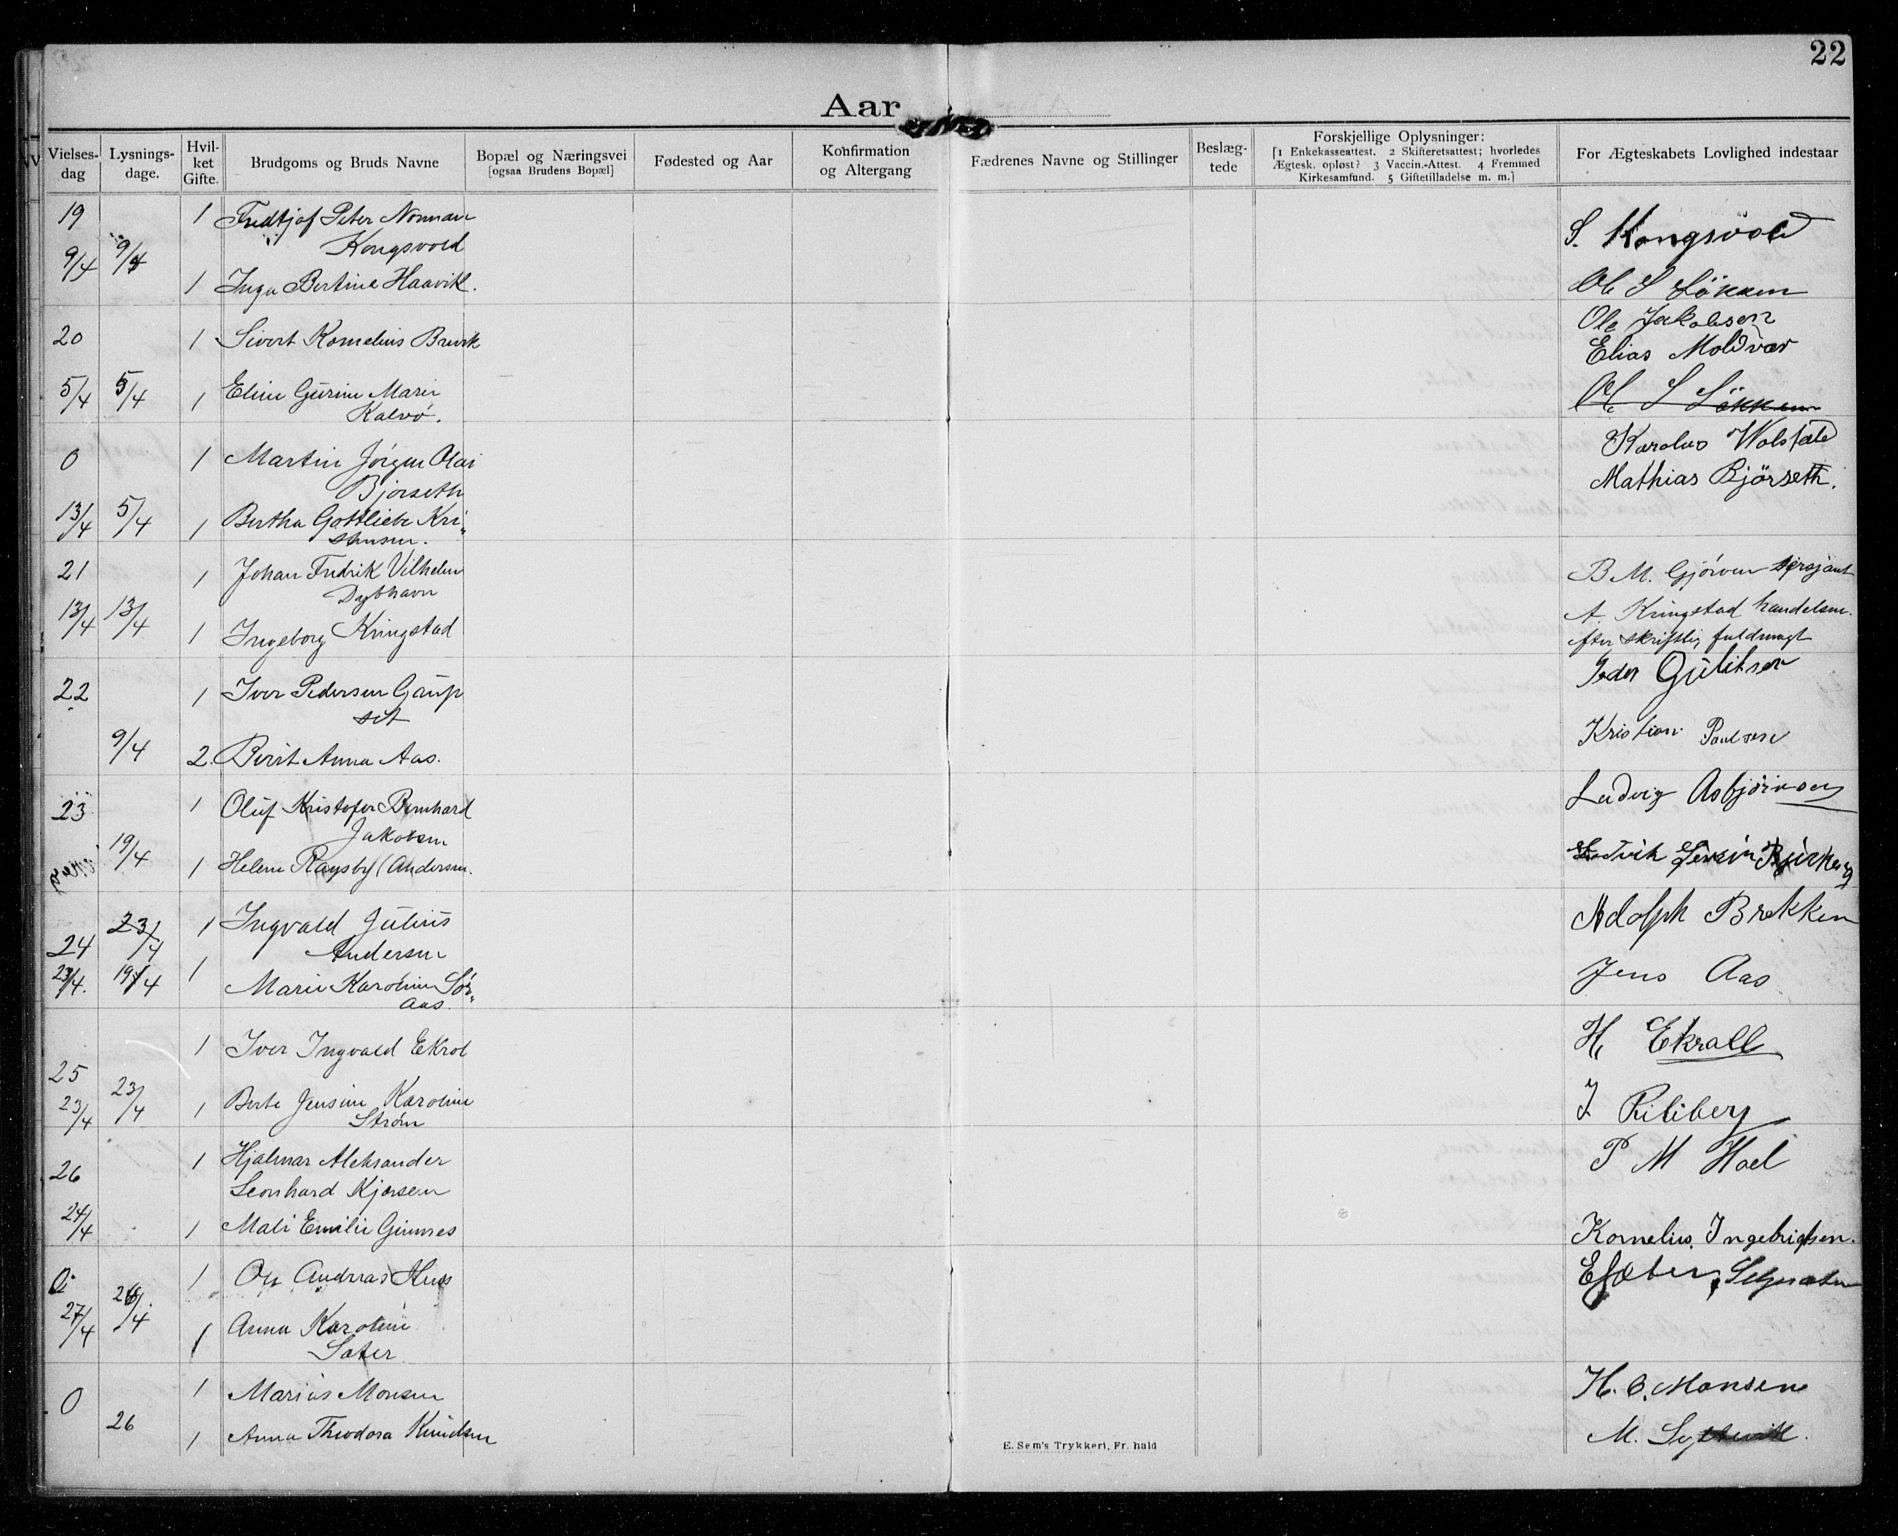 22
Aar
Vielses-dag Lysnings-dage. Hvil-ket Gifte. Brudgoms og Bruds Navne Bopæl og Næringsvei [ogsaa Brudens Bopæl] Fødested og Aar Konfirmation og Altergang Fædrenes Navne og Stillinger Beslæg-tede Forskjellige Oplysninger: [1 Enkekasseattest. 2 Skifteretsattest; hvorledes Ægtesk. opløst? 3 Vaccin.-Attest. 4 Fremmed Kirkesamfund. 5 Giftetilladelse m. m.] For Ægteskabets Lovlighed indestaar
19 1 Fredtjof Peter Norman S. Kongsvold
Kongsvold
9/4 9/4 1 Inga Bertine Haavik. Ole S Løkken
Ole Jakobsen
20 1 Sivert Kornelius Brevik Elias Moldvær
5/4 5/4 1 Eline Gurine Marie Ole S Løkken
Kalvø.
0 1 Martin Jørgen Olai Karolus Wolstad
Bjørseth Mathias Bjørseth.
13/4 5/4 1 Bertha Gottliebe Kri-
stensen.
21 1 Johan Fredrik Vilhelm B M. Gjørven sersjant
Dybhavn
13/4 13/4 1 Ingeborg Kringstad A. Kringstad handelsm.
efter skriftlig fuldmagt
22 1 Iver Pedersen Grup Peder Gulliksen
set
9/4 2. Berit Anna Aas. Kristian Paulsen
23 1 Oluf Kristofer Bernhard Ludvig Asbjørnsen
Jakobsen
19/4 1 Helene Raysby (Andersen.
24 23/4 1 Ingvald Julius Adolph Brekken
Andersen
23/4. 19/4 1 Marie Karoline Sør- Jens Aas
aas.
25 1 Iver Ingvald Ekrol H. Ekrall
23/4 23/4 1 Berte Jensine Karoline
Strøm
26 1 Hjalmar Aleksander P M Hoel
Leonhard Kjørsem
24/4 1 Mali Emilie Gimnes Kornelius Ingebrigtsen.
0 1 Andreas Hus
27/4 26/4 1 Anna Karoline
Sæter
0 1 Marius Monsen H. C. Monsen
26 1 Anna Theodora Knudsen M.
E. Sem's Trykkeri, Fr.hald